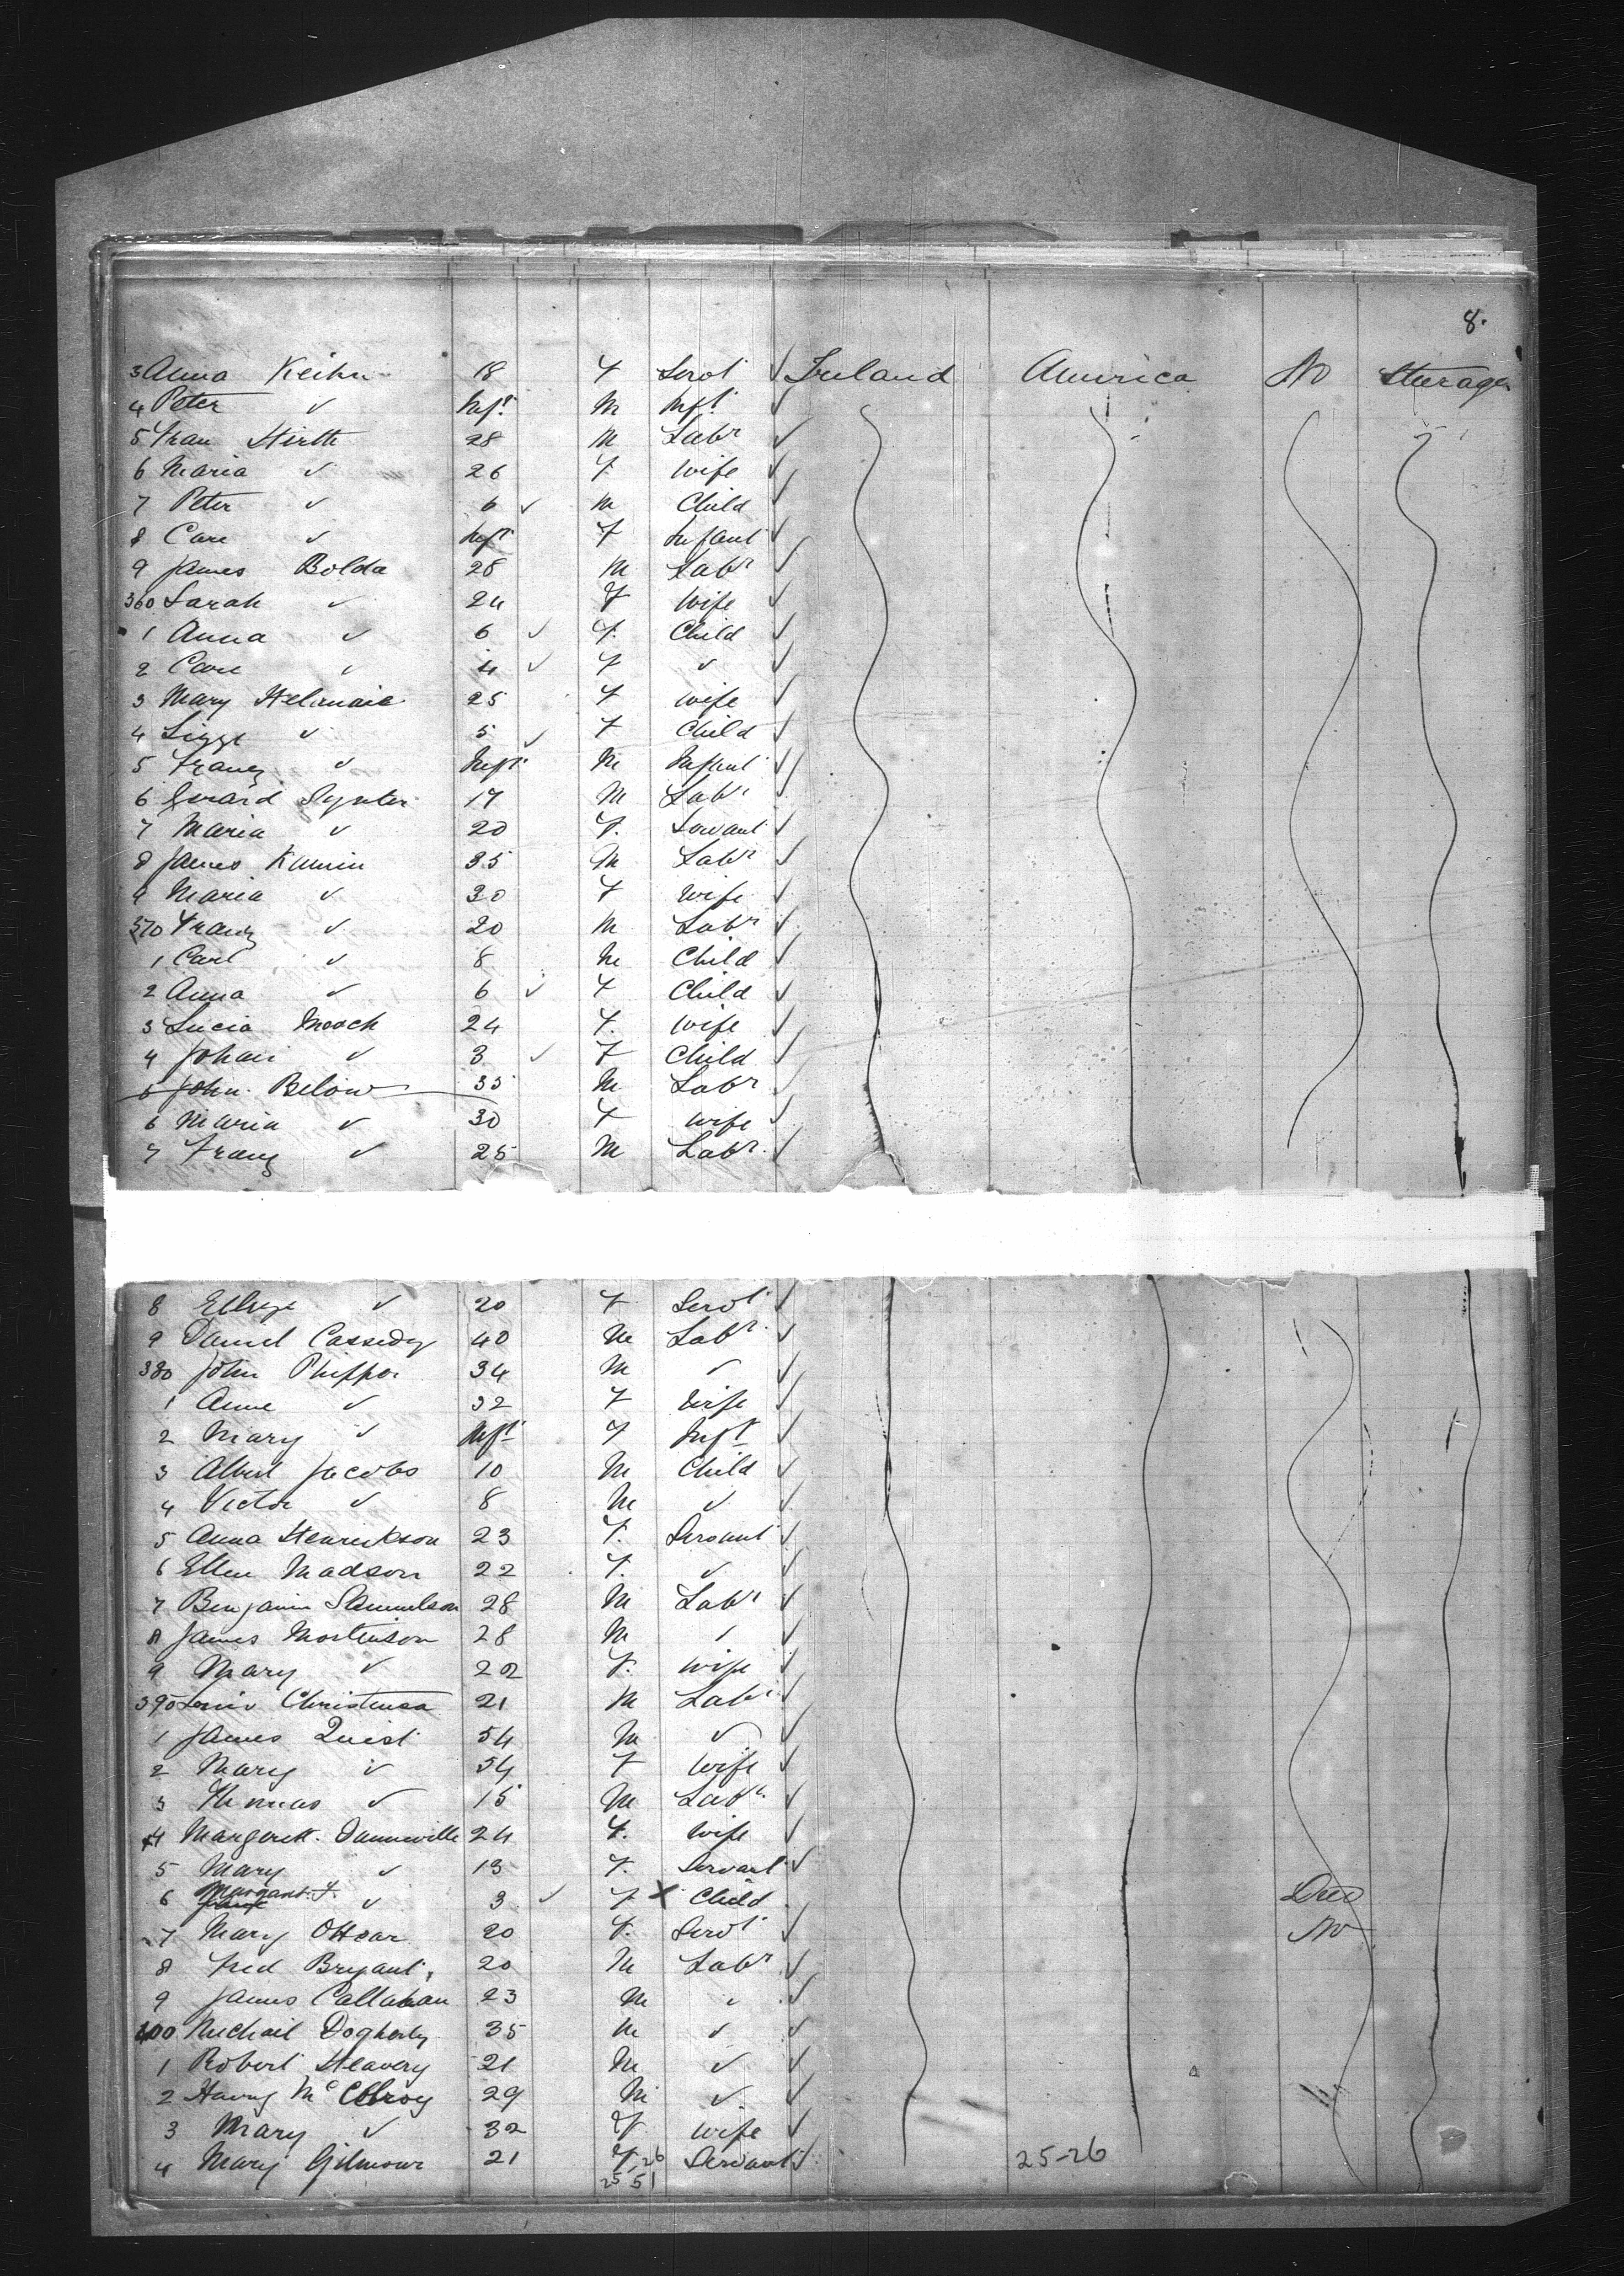 8.
3 Anna Keihn 18 F Servt ✓ Ireland America No Steerage
4 Peter ✓ Inft M Inft ✓
5 Fran Hirth 28 M Labr ✓
6 Maria ✓ 26 F Wife ✓
7 Peter ✓ 6 ✓ M Child ✓
8 Care ✓ Inft F Infant ✓
9 James Bolda 28 M Labr ✓
360 Sarah ✓ 24 F Wife ✓
1 Anna ✓ 6 ✓ F. Child ✓
2 Care ✓ 4 ✓ F ✓ ✓
3 Mary 25 F Wife ✓
4 Lizze ✓ 5 ✓ F Child ✓
5 Franz ✓ Inft M Infant ✓
6 Gerard 17 M Labr ✓
7 Maria ✓ 20 F. Servant ✓
8 James Kumin 35 M Labr ✓
9 Maria ✓ 30 F Wife ✓
370 Franz ✓ 20 M Labr ✓
1 Carl ✓ 8 M Child ✓
2 Anna ✓ 6 ✓ F Child ✓
3 Lucia Moock 24 F. Wife ✓
4 Johan ✓ 3 ✓ F Child ✓
5 John Below 35 M Labr ✓
6 Maria ✓ 30 F Wife ✓
7 Franz ✓ 25 M Labr. ✓
8 ✓ 20 F Servt ✓
9 Daniel Cassedy 40 M Labr ✓
380 John 34 M ✓ ✓
1 Anne ✓ 32 F Wife ✓
2 Mary ✓ Inft F Inft ✓
3 Albert Jacobs 10 M Child ✓
4 Victor ✓ 8 M ✓ ✓
5 Anna Henrikson 23 F. Servant ✓
6 Ellen Madson 22 F. ✓ ✓
7 Benjamin Samuelson 28 M Labr ✓
8 James Mortinson 28 M ✓ ✓
9 Mary ✓ 22 F. Wife ✓
390 Christensa 21 M Labr ✓
1 James Quist 54 M ✓ ✓
2 Mary ✓ 54 F Wife ✓
3 Thomas ✓ 15 M Labr ✓
4 Margerett Danneville 24 F. Wife ✓
5 Mary ✓ 13 F. Servant ✓
6 Margaret F. ✓ 3 ✓ F X Child Died
7 Mary Ottear 20 F. Servt ✓ No
8 Fred Bryant 20 M Labr ✓
9 James Callahan 23 M ✓ ✓
400 Michail Dogherty 35 M ✓ ✓
1 Robert Heavery 21 M ✓ ✓
2 Harvy McElroy 29 M ✓ ✓
3 Mary ✓ 32 F. Wife ✓
4 Mary Gilmour 21 F. Servant ✓
26
25 51
25-26